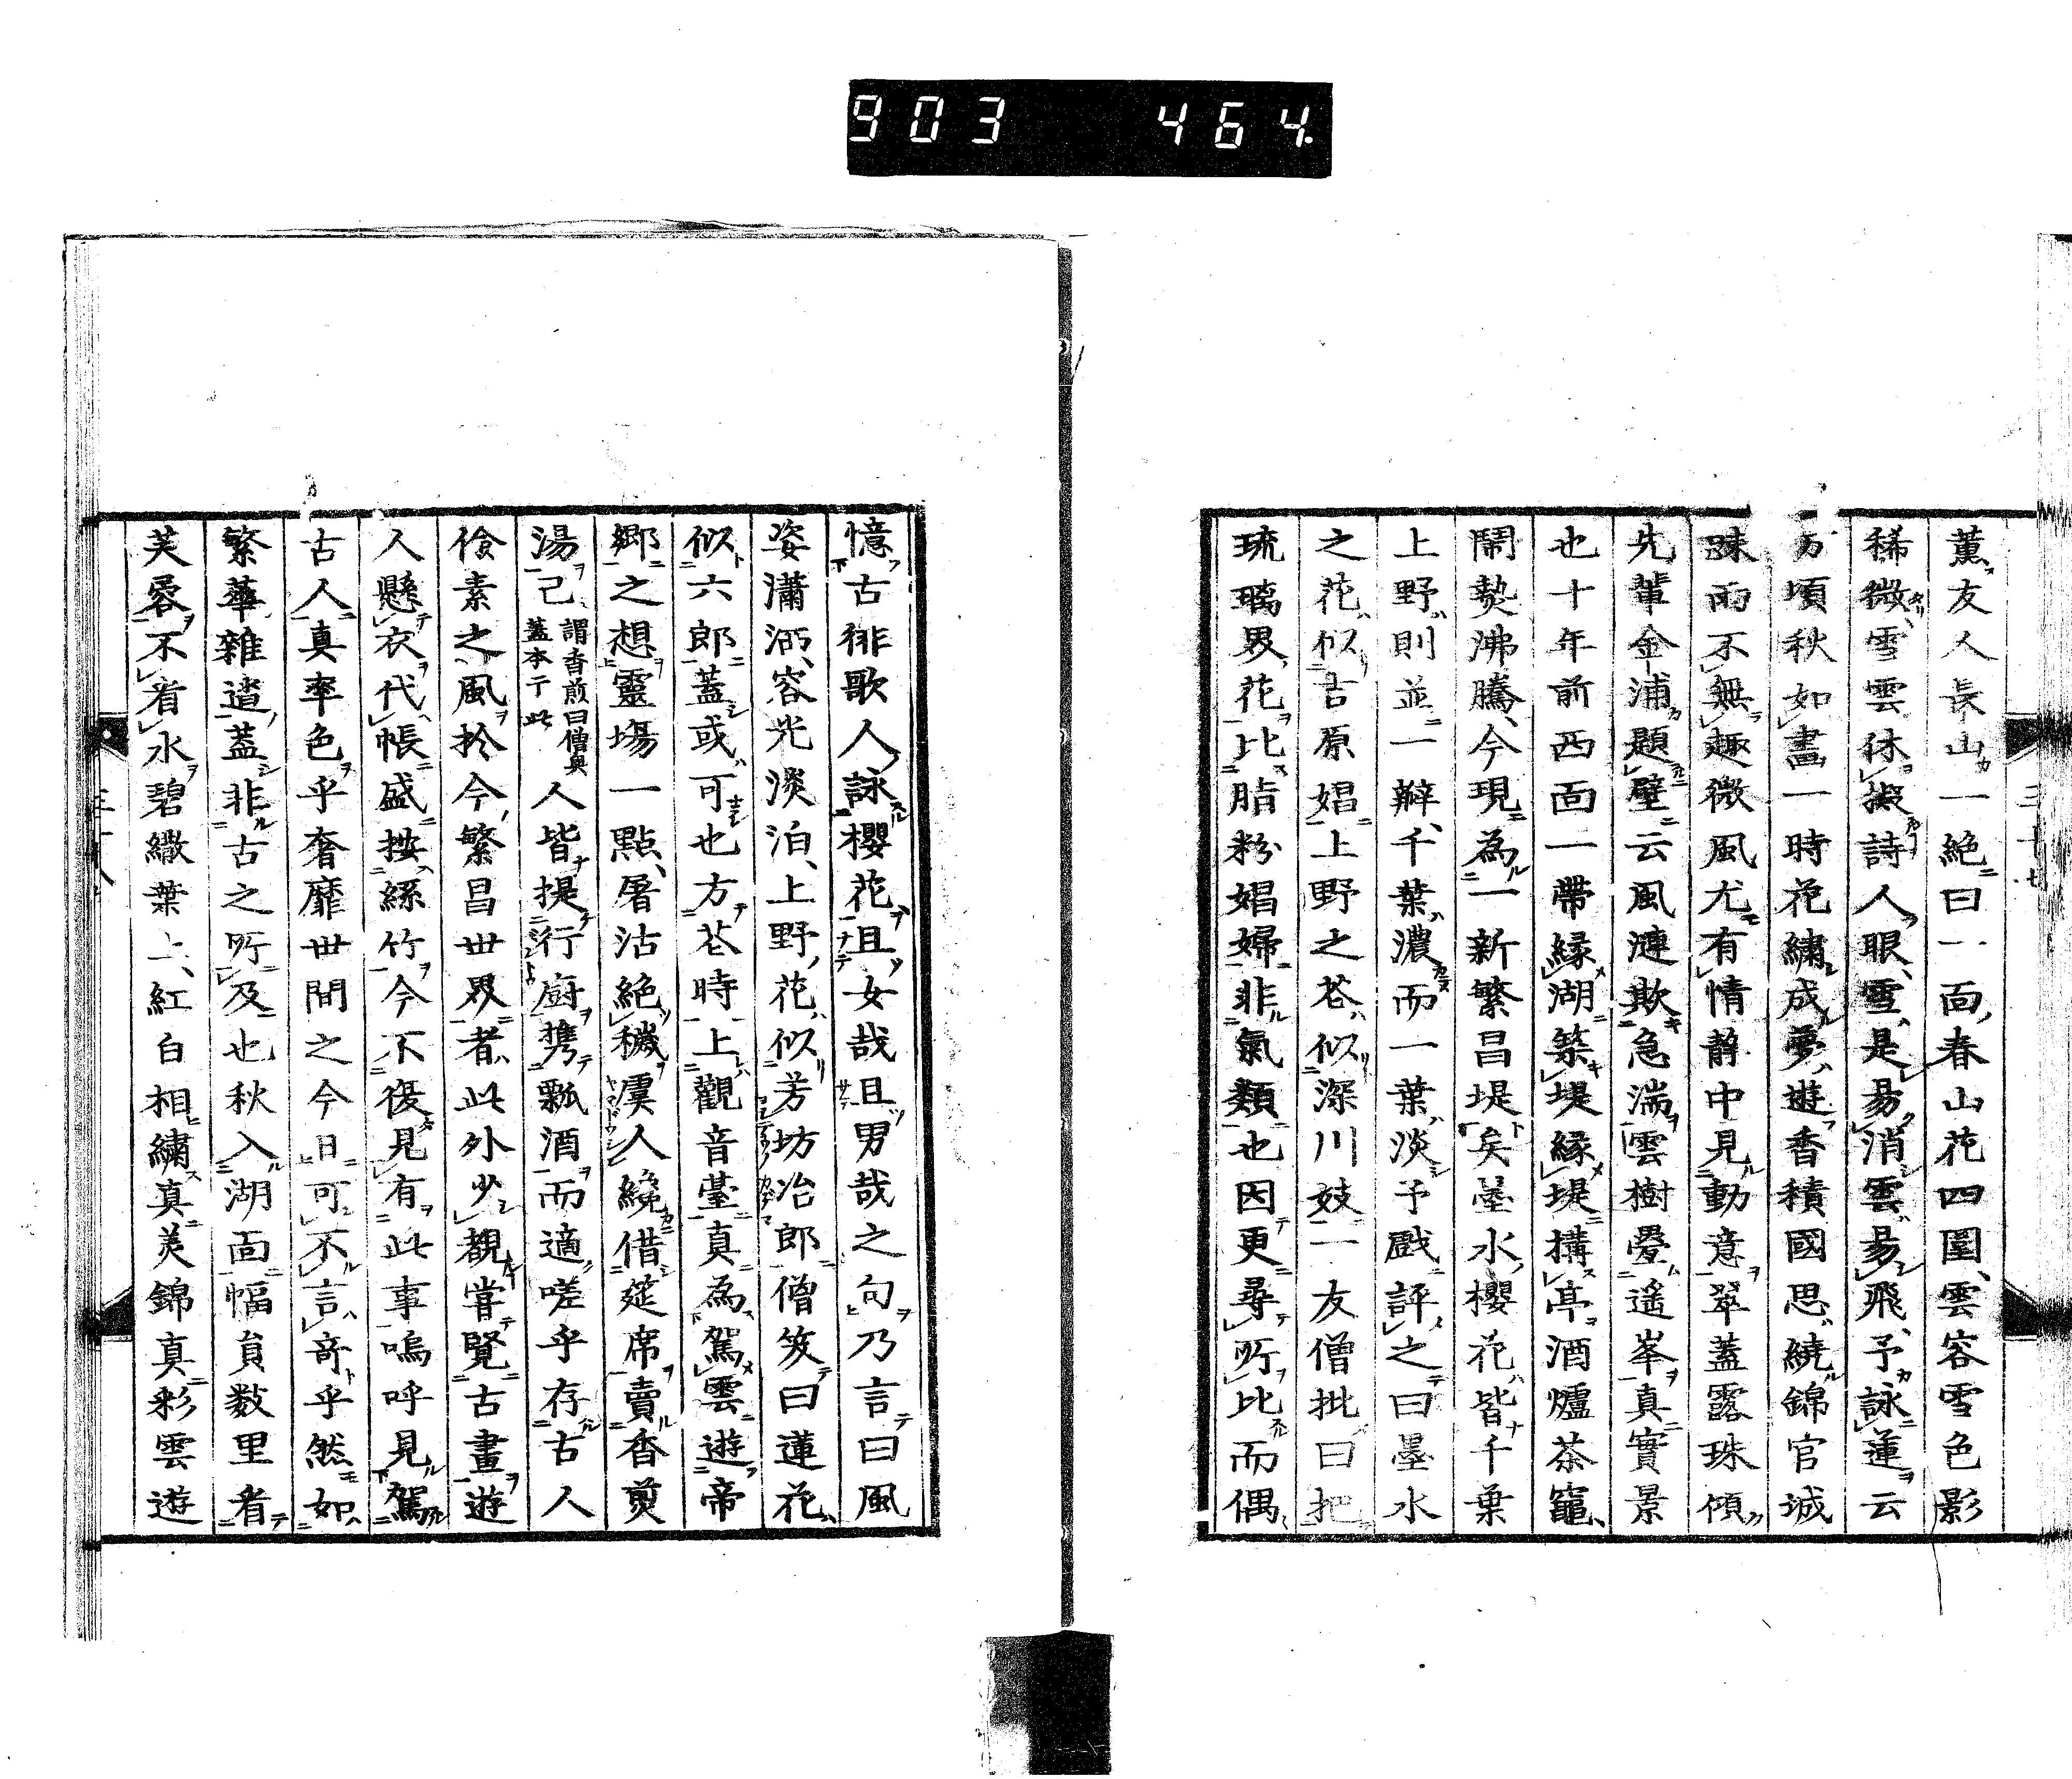 903 464.
薫友人長山一絶曰一面春山花四圍雲容雪色影
稀微雪雲休擬詩人眼雪是易消雲易飛予詠蓮云
万頃秋如畫一時花繍成夢遊香積國思繞錦官城
踈雨不無趣微風尤有情静中見動意翠蓋露珠傾
先輩金浦題壁云風漣欺急湍雲樹疊遥峯真實景
也十年前西面一帶縁湖築堤縁堤搆亭酒爐茶竈
鬧𤍠沸騰今現為一新繁昌堤矣墨水櫻花皆千葉
上野則並一瓣千葉濃而一葉淡予戯評之曰墨水
之花似吉原娼上野之花似深川妓一友僧批曰把
琉璃界花比脂粉娼婦非氣類也因更尋所比而偶
憶古徘歌人詠櫻花且女哉且男哉之句乃言曰風
姿瀟洒容光淡泊上野花似芳坊冶郎僧笑曰蓮花
似六郎蓋或可也方花時上觀音臺真為駕雲遊帝
郷之想靈場一點屠沽絶穢虞人纔借筵席賣香煎
湯已
謂香煎曰僧輿
蓋本于此
人皆提行廚携瓢酒而適嗟乎存古人
儉素之風於今繁昌世界者此外少覩嘗覧古畫遊
人懸衣代帳盛按絲竹今不復見有此事嗚呼見駕
古人真率色乎奢靡世間之今日可不言竒乎然如
繁華雜遝蓋非古之所及也秋入湖面幅員数里者
芙蓉不看水碧繖葉上紅白相繍真美錦真彩雲遊